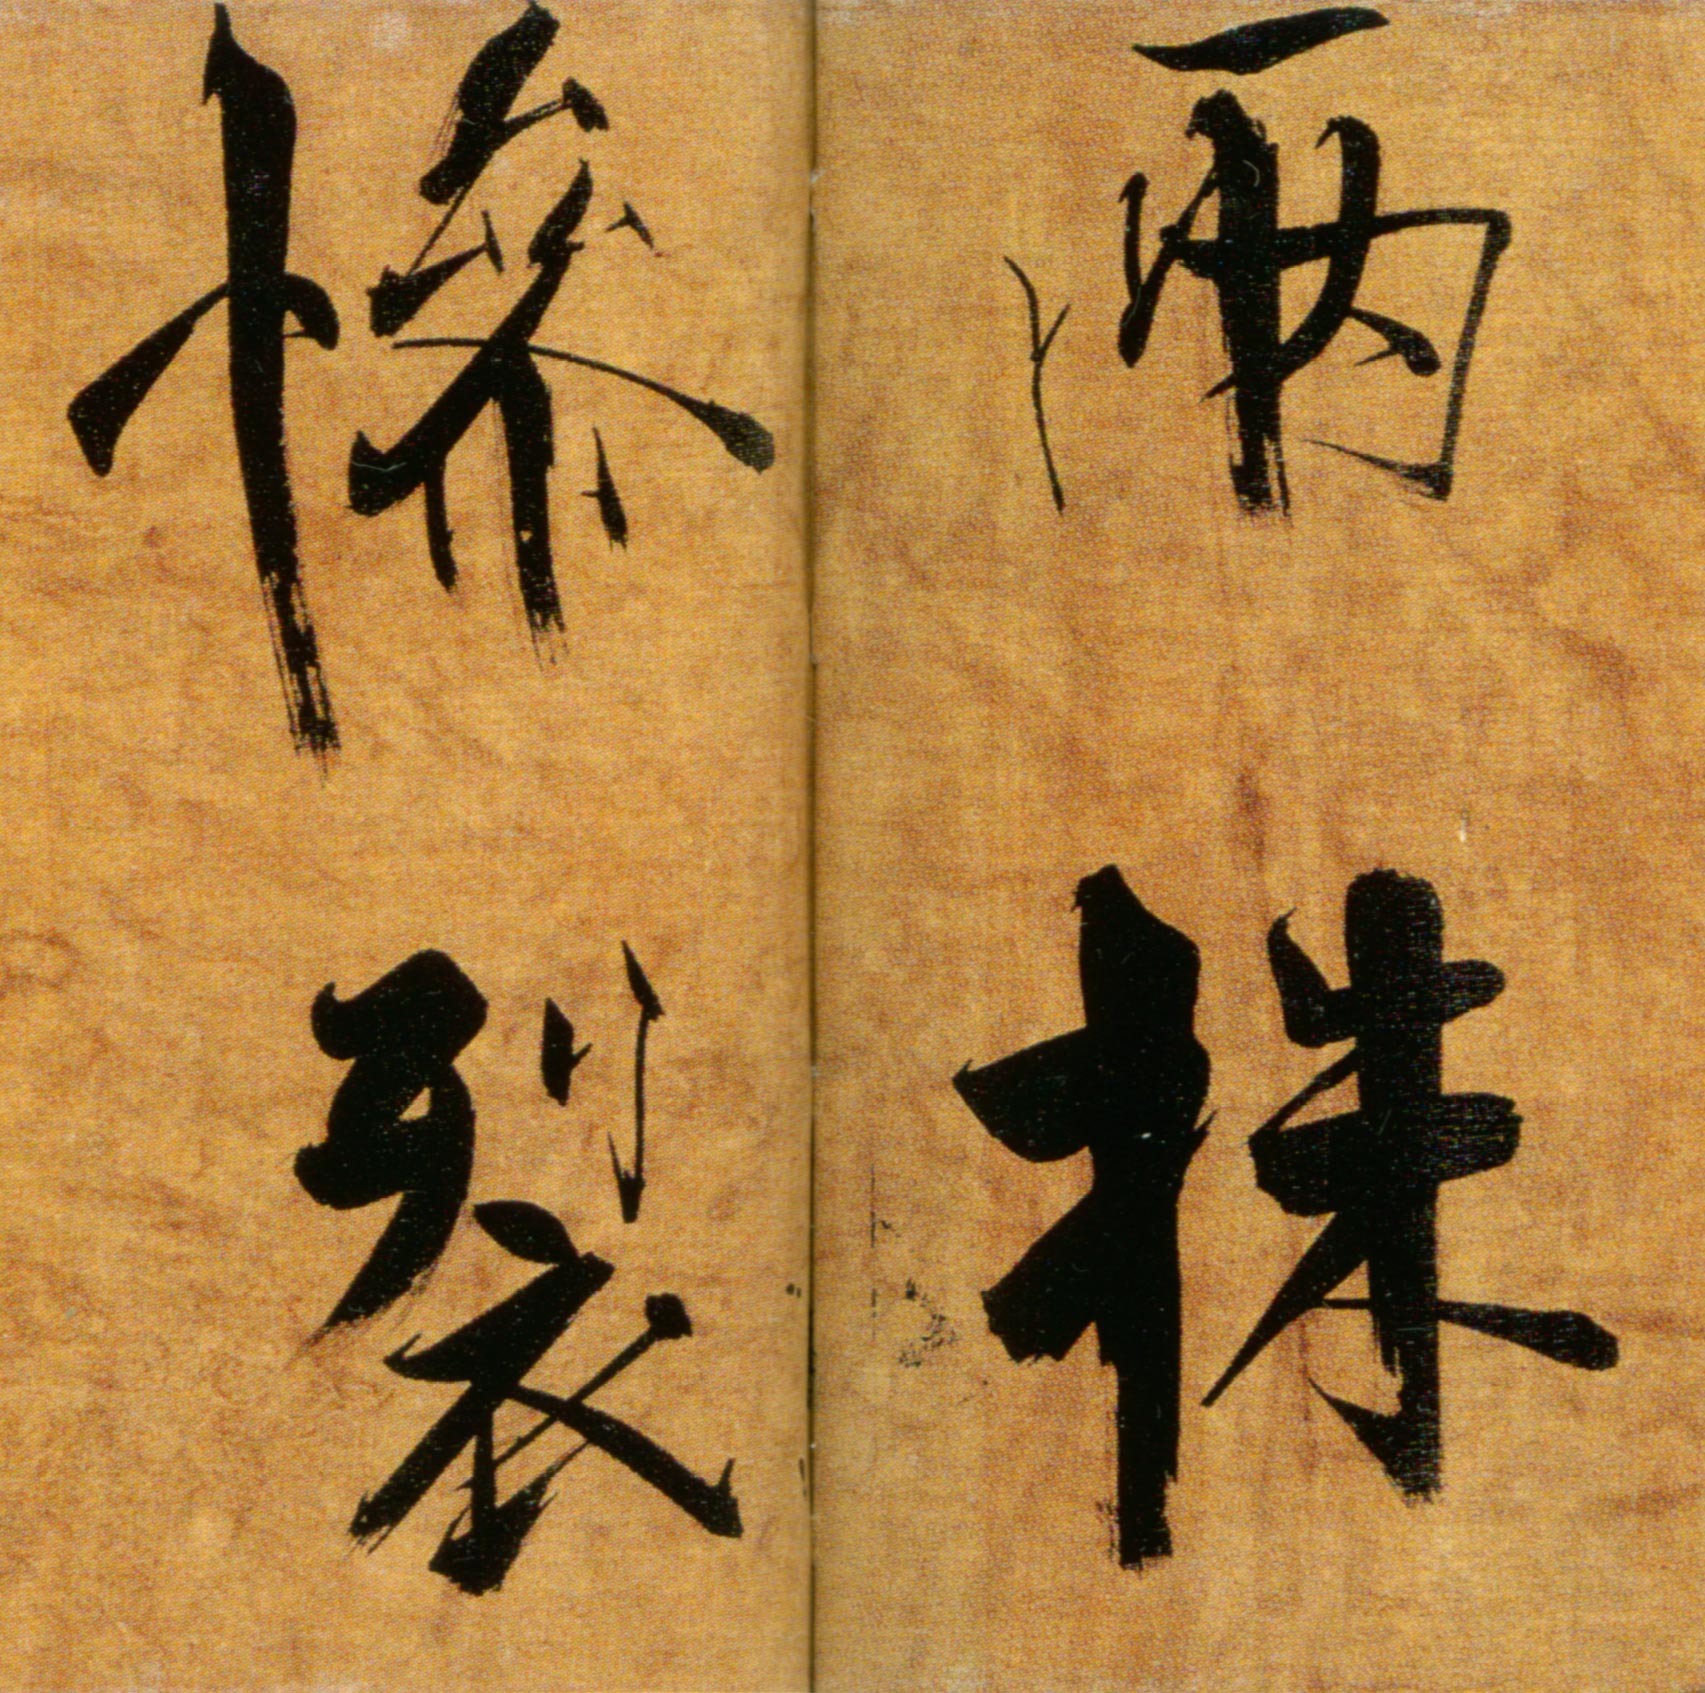 兩株
慘裂